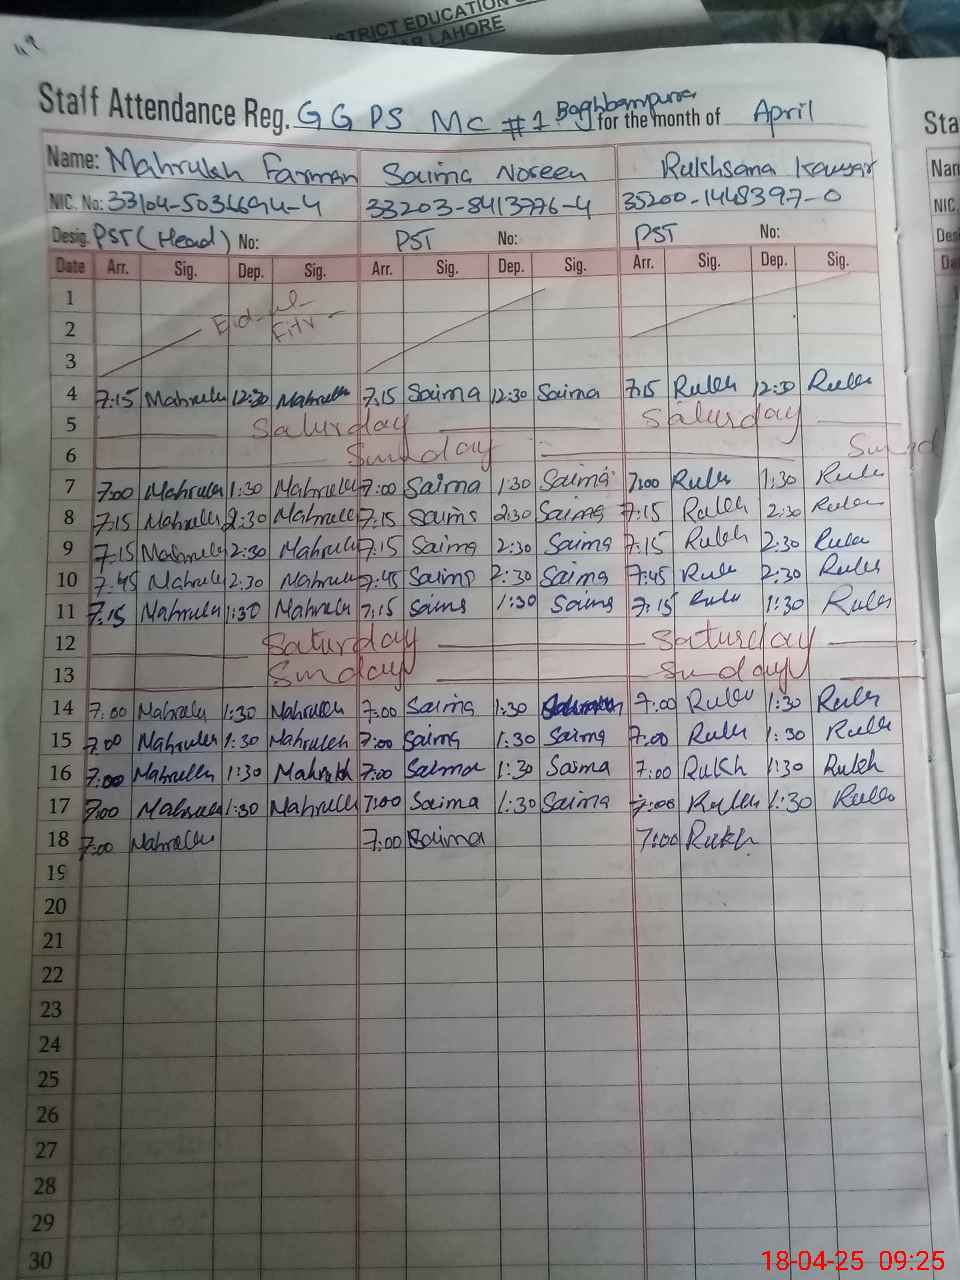 STRICT EDUCATION
AR LAHORE
Staff Attendance Reg. G G PS MC #1 Baghbampura for the month of April
Sta
Name: Mahrukh Farman Saima Noreen Rukhsana Kawsar
Nam
NIC. No: 33104-5034694-4 33203-8413776-4 35200-1448397-0
NIC.
Desig. PST (Head) No: PST No: PST No:
Date Arr. Sig. Dep. Sig. Arr. Sig. Dep. Sig. Arr. Sig. Dep. Sig.
1
2 Eid-ul-Fitr
3
4 7:15 Mahrukh 12:30 Mahrukh 7:15 Saima 12:30 Saima 7:15 Rukh 12:30 Rukh
5 Saturday Saturday
6 Sunday
7 7:00 Mahrukh 1:30 Mahrukh 7:00 Saima 1:30 Saima 7:00 Rukh 1:30 Rukh
8 7:15 Mahrukh 2:30 Mahrukh 7:15 Saima 2:30 Saima 7:15 Rukh 2:30 Rukh
9 7:15 Mahrukh 2:30 Mahrukh 7:15 Saima 2:30 Saima 7:15 Rukh 2:30 Rukh
10 7:45 Mahrukh 2:30 Mahrukh 7:45 Saima 2:30 Saima 7:45 Rukh 2:30 Rukh
11 7:15 Mahrukh 1:30 Mahrukh 7:15 Saima 1:30 Saima 7:15 Rukh 1:30 Rukh
12 Saturday Saturday
13 Sunday Sunday
14 7:00 Mahrukh 1:30 Mahrukh 7:00 Saima 1:30 7:00 Rukh 1:30 Rukh
15 7:00 Mahrukh 1:30 Mahrukh 7:00 Saima 1:30 Saima 7:00 Rukh 1:30 Rukh
16 7:00 Mahrukh 1:30 Mahrukh 7:00 Saima 1:30 Saima 7:00 Rukh 1:30 Rukh
17 7:00 Mahrukh 1:30 Mahrukh 7:00 Saima 1:30 Saima 7:00 Rukh 1:30 Rukh
18 7:00 Mahrukh 7:00 Saima 7:00 Rukh
19
20
21
22
23
24
25
26
27
28
29
30
18-04-25 09:25